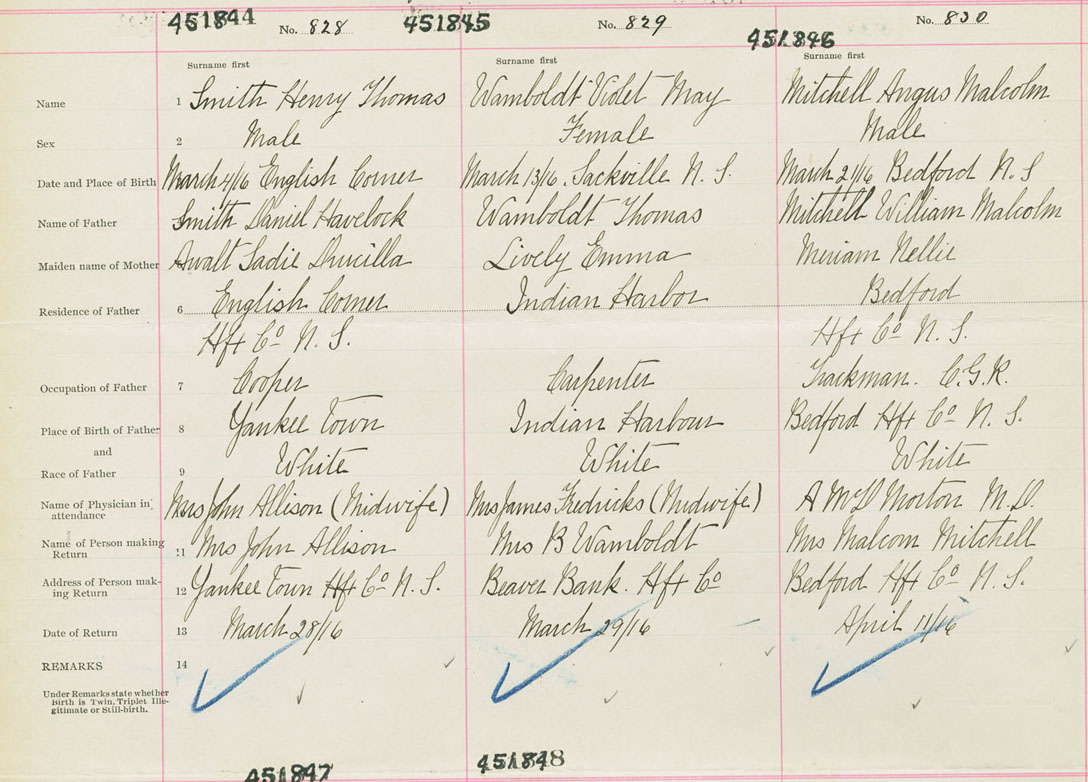 451844 No. 828 451845 No. 829 451846 No. 830
Surname first Surname first Surname first
Name 1 Smith Henry Thomas Wamboldt Violet May Mitchell Angus Malcolm
Sex 2 Male Female Male
Date and Place of Birth March 4/16 English Corner March 13/16. Sackville N. S. March 21/16 Bedford N. S
Name of Father Smith Daniel Havelock Wamboldt Thomas Mitchell William Malcolm
Maiden name of Mother Awalt Sadie Drucilla Lively Emma Meriam Nellie
Residence of Father 6 English Corner Indian Harbor Bedford
Hfx Co N. S. Hfx Co N. S.
Occupation of Father 7 Cooper Carpenter Trackman. C.G.R.
Place of Birth of Father 8 Yankee Town Indian Harbour Bedford Hfx Co N. S.
and
Race of Father 9 White White White
Name of Physician in attendance Mrs John Allison (Midwife) Mrs James Fredricks (Midwife) A McD Morton M.D.
Name of Person making Return 11 Mrs John Allison Mrs B Wamboldt Mrs Malcom Mitchell
Address of Person mak-ing Return 12 Yankee Town Hfx Co N. S. Beaver Bank. Hfx Co Bedford Hfx Co N. S.
Date of Return 13 March 28/16 March 29/16 April 11/16
REMARKS 14
Under Remarks state whether
Birth is Twin, Triplet Ille-
gitimate or Still-birth.
451847 451848